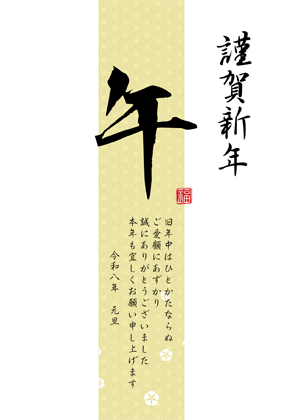 謹賀新年
午
福
旧年中はひとかたならぬ
ご愛顧にあずかり
誠にありがとうございました
本年も宜しくお願い申し上げます
令和八年　元旦